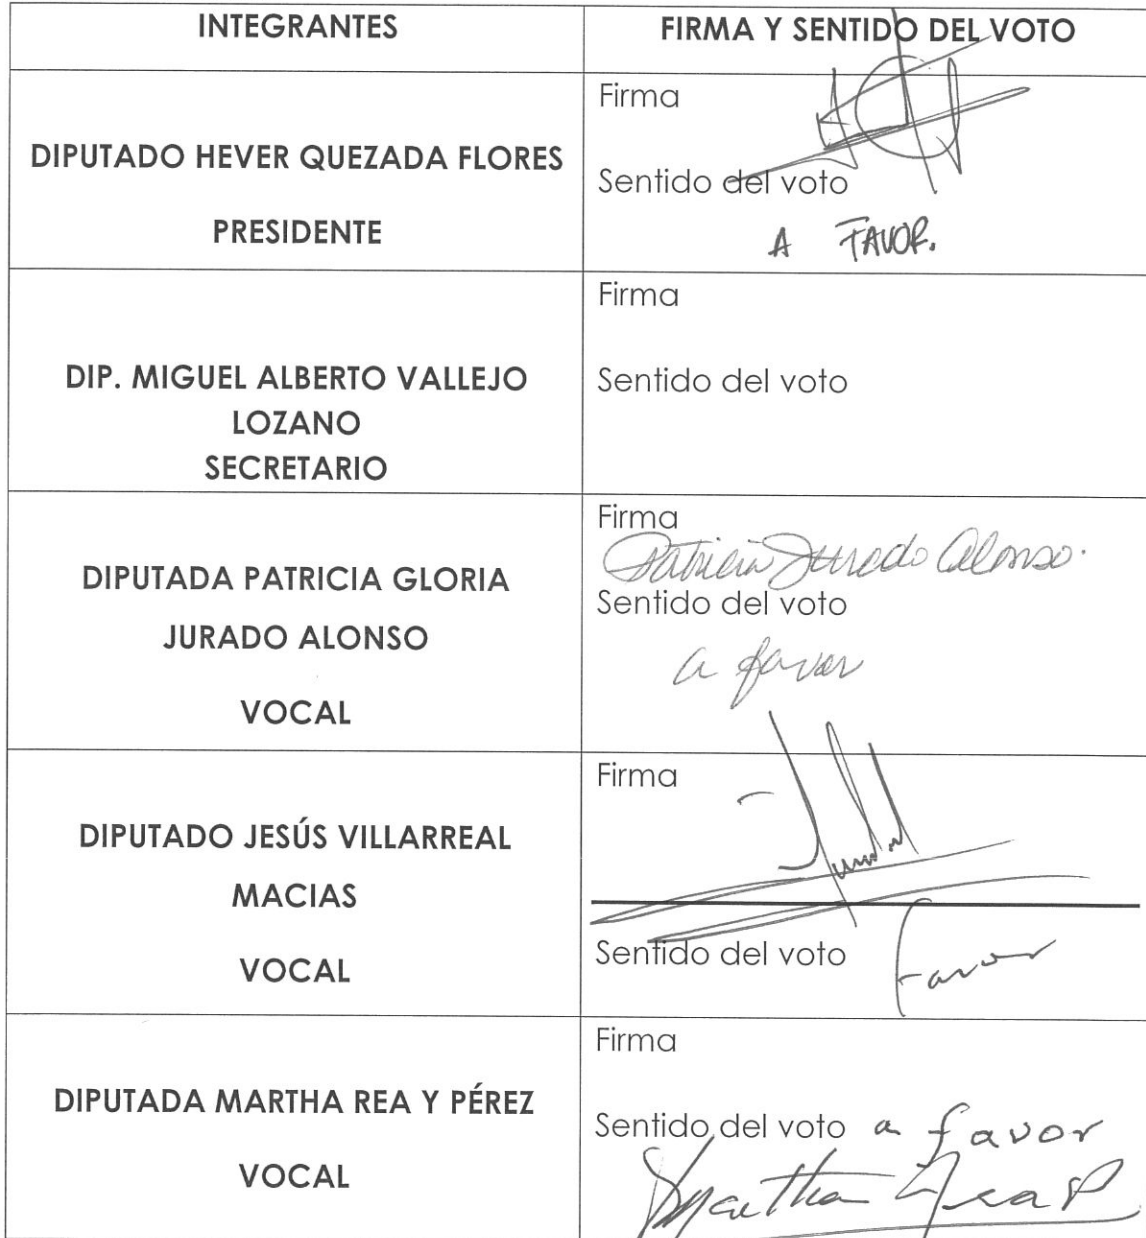 INTEGRANTES
FIRMA Y SENTIDO DEL VOTO
DIPUTADO HEVER QUEZADA FLORES
PRESIDENTE
Firma
Sentido del voto
A FAVOR.
DIP. MIGUEL ALBERTO VALLEJO
LOZANO
SECRETARIO
Firma
Sentido del voto
DIPUTADA PATRICIA GLORIA
JURADO ALONSO
VOCAL
Firma
Patricia Jurado Alonso.
Sentido del voto
a favor
DIPUTADO JESÚS VILLARREAL
MACIAS
VOCAL
Firma
Sentido del voto Favor
DIPUTADA MARTHA REA Y PÉREZ
VOCAL
Firma
Sentido del voto a favor
Martha Rea P